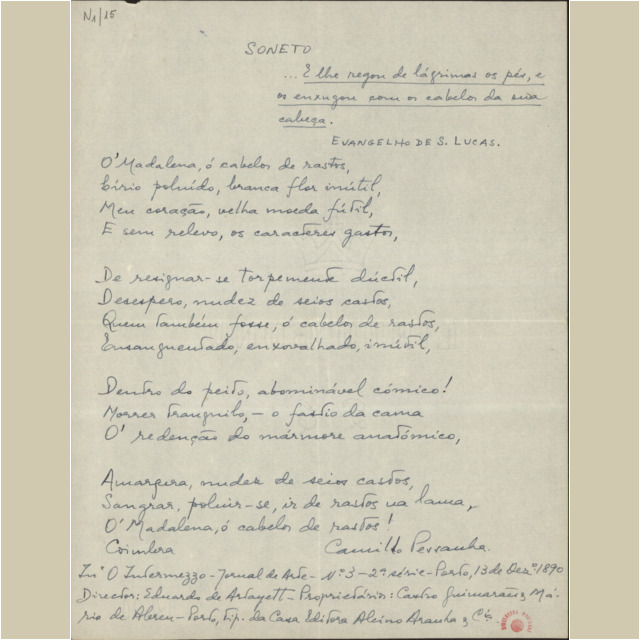 N1/15
SONETO
...E lhe regou de lágrimas os pés, e
os enxugou com os cabelos da sua
cabeça.
EVANGELHO DE S. LUCAS.
O' Madalena, ó cabelos de rastos,
Lírio poluído, branca flor inútil,
Meu coração, velha moeda fútil,
E sem relevo, os caracteres gastos,
De resignar-se torpemente dúctil,
Desespero, nudez de seios castos,
Quem também fosse, ó cabelos de rastos,
Ensanguentado, enxovalhado, inútil,
Dentro do peito, abominável cómico!
Morrer tranquilo, - o fastio da cama
O' redenção do mármore anatómico,
Amargura, nudez de seios castos,
Sangrar, poluir-se, ir de rastos na lama,
O' Madalena, ó cabelos de rastos!
Coimbra Camillo Pessanha.
In: O Intermezzo - Jornal de Arte - Nº 3 - 2ª série - Porto, 13 de Dezº 1890
Director: Eduardo de Artayett - Proprietários: Castro Guimarães, Má-
rio de Abreu - Porto, Tip. da Casa Editora Alcino Aranha & Cª.